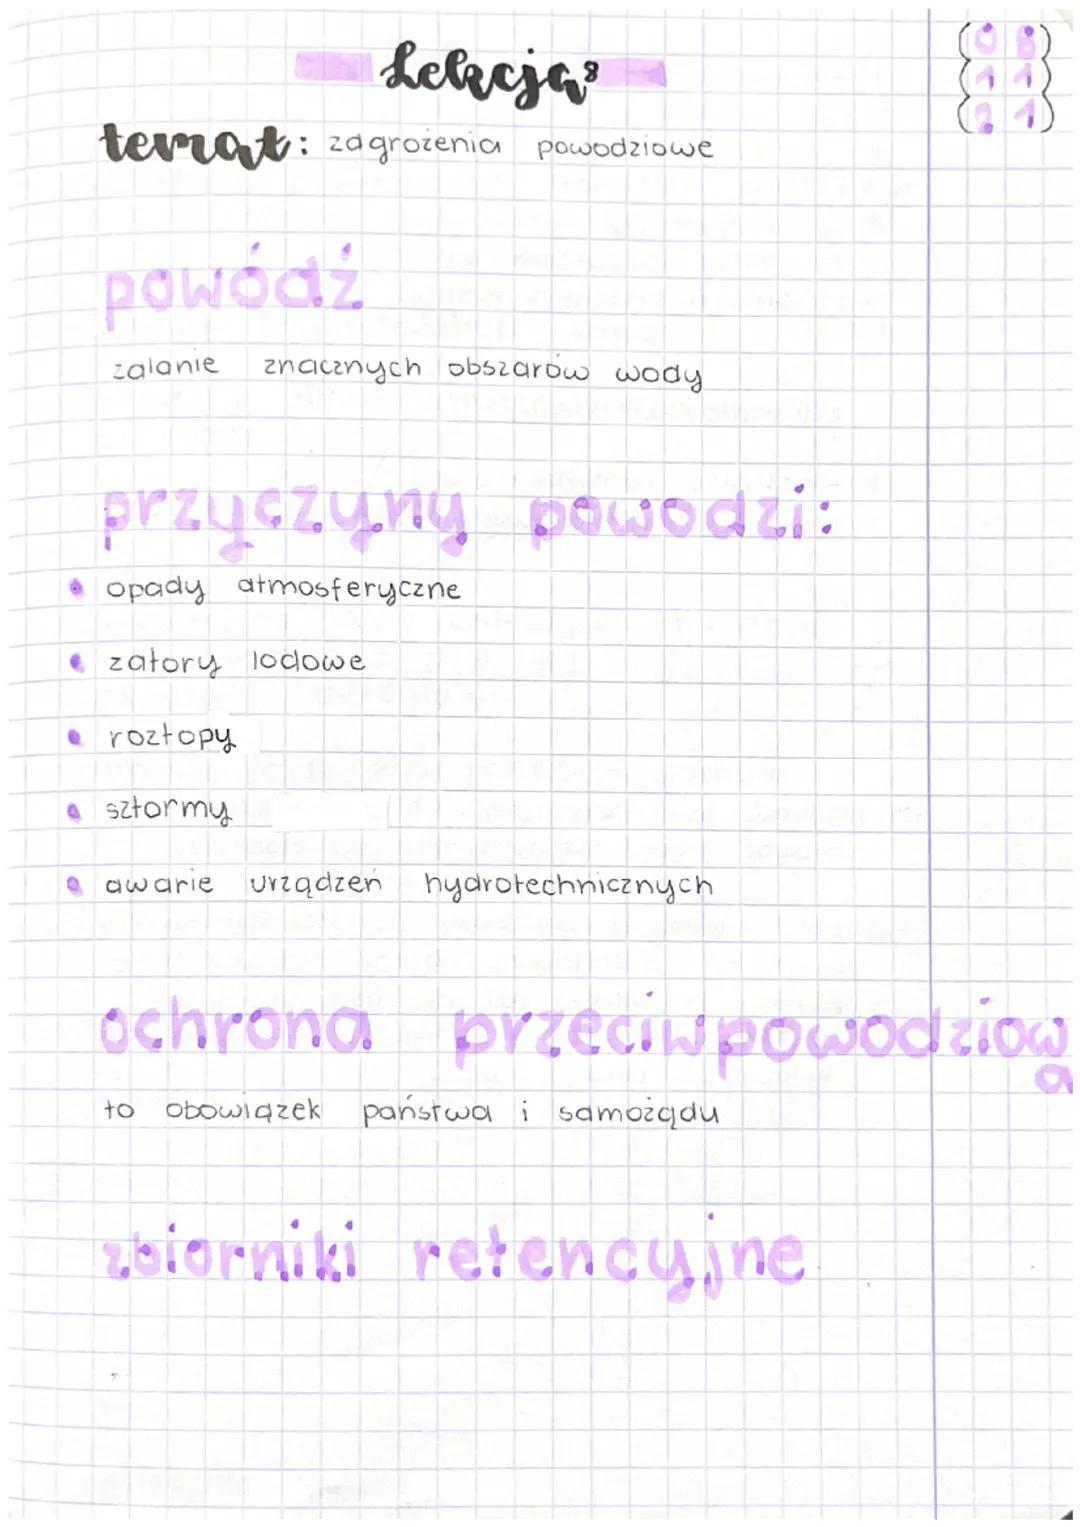 Lekcja 8
08
11
21
temat: zagrożenia powodziowe
powódź
zalanie znacznych obszarów wody
przyczyny powodzi:
opady atmosferyczne
zatory lodowe
roztopy
sztormy
awarie urządzeń hydrotechnicznych
ochrona przeciwpowodziow
a
to obowiązek państwa i samożądu
zbiorniki retencyjne